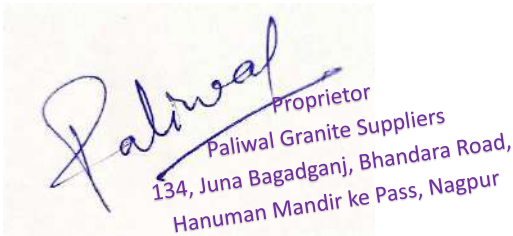 Paliwal
Proprietor
Paliwal Granite Suppliers
134, Juna Bagadganj, Bhandara Road,
Hanuman Mandir ke Pass, Nagpur